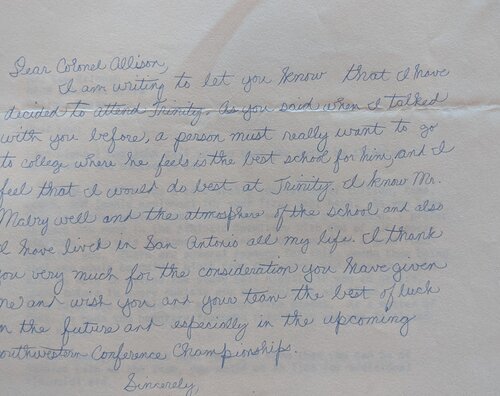 Dear Colonel Allison,
I am writing to let you know that I have
decided to attend Trinity. As you said when I talked
with you before, a person must really want to go
to college where he feels is the best school for him, and I
feel that I would do best at Trinity. I know Mr.
Mabry well and the atmosphere of the school and also
I have lived in San Antonio all my life. I thank
you very much for the consideration you have given
me and wish you and your team the best of luck
in the future and especially in the upcoming
Southwestern Conference Championships.
Sincerely,